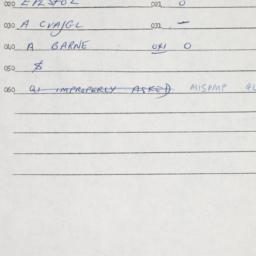 020 EPZSFOL 021 0
030 A CVAJGL 031 —
040 A BARNE 041 0
050 $
060 Q1 IMPROPERLY ASKED MISPMP